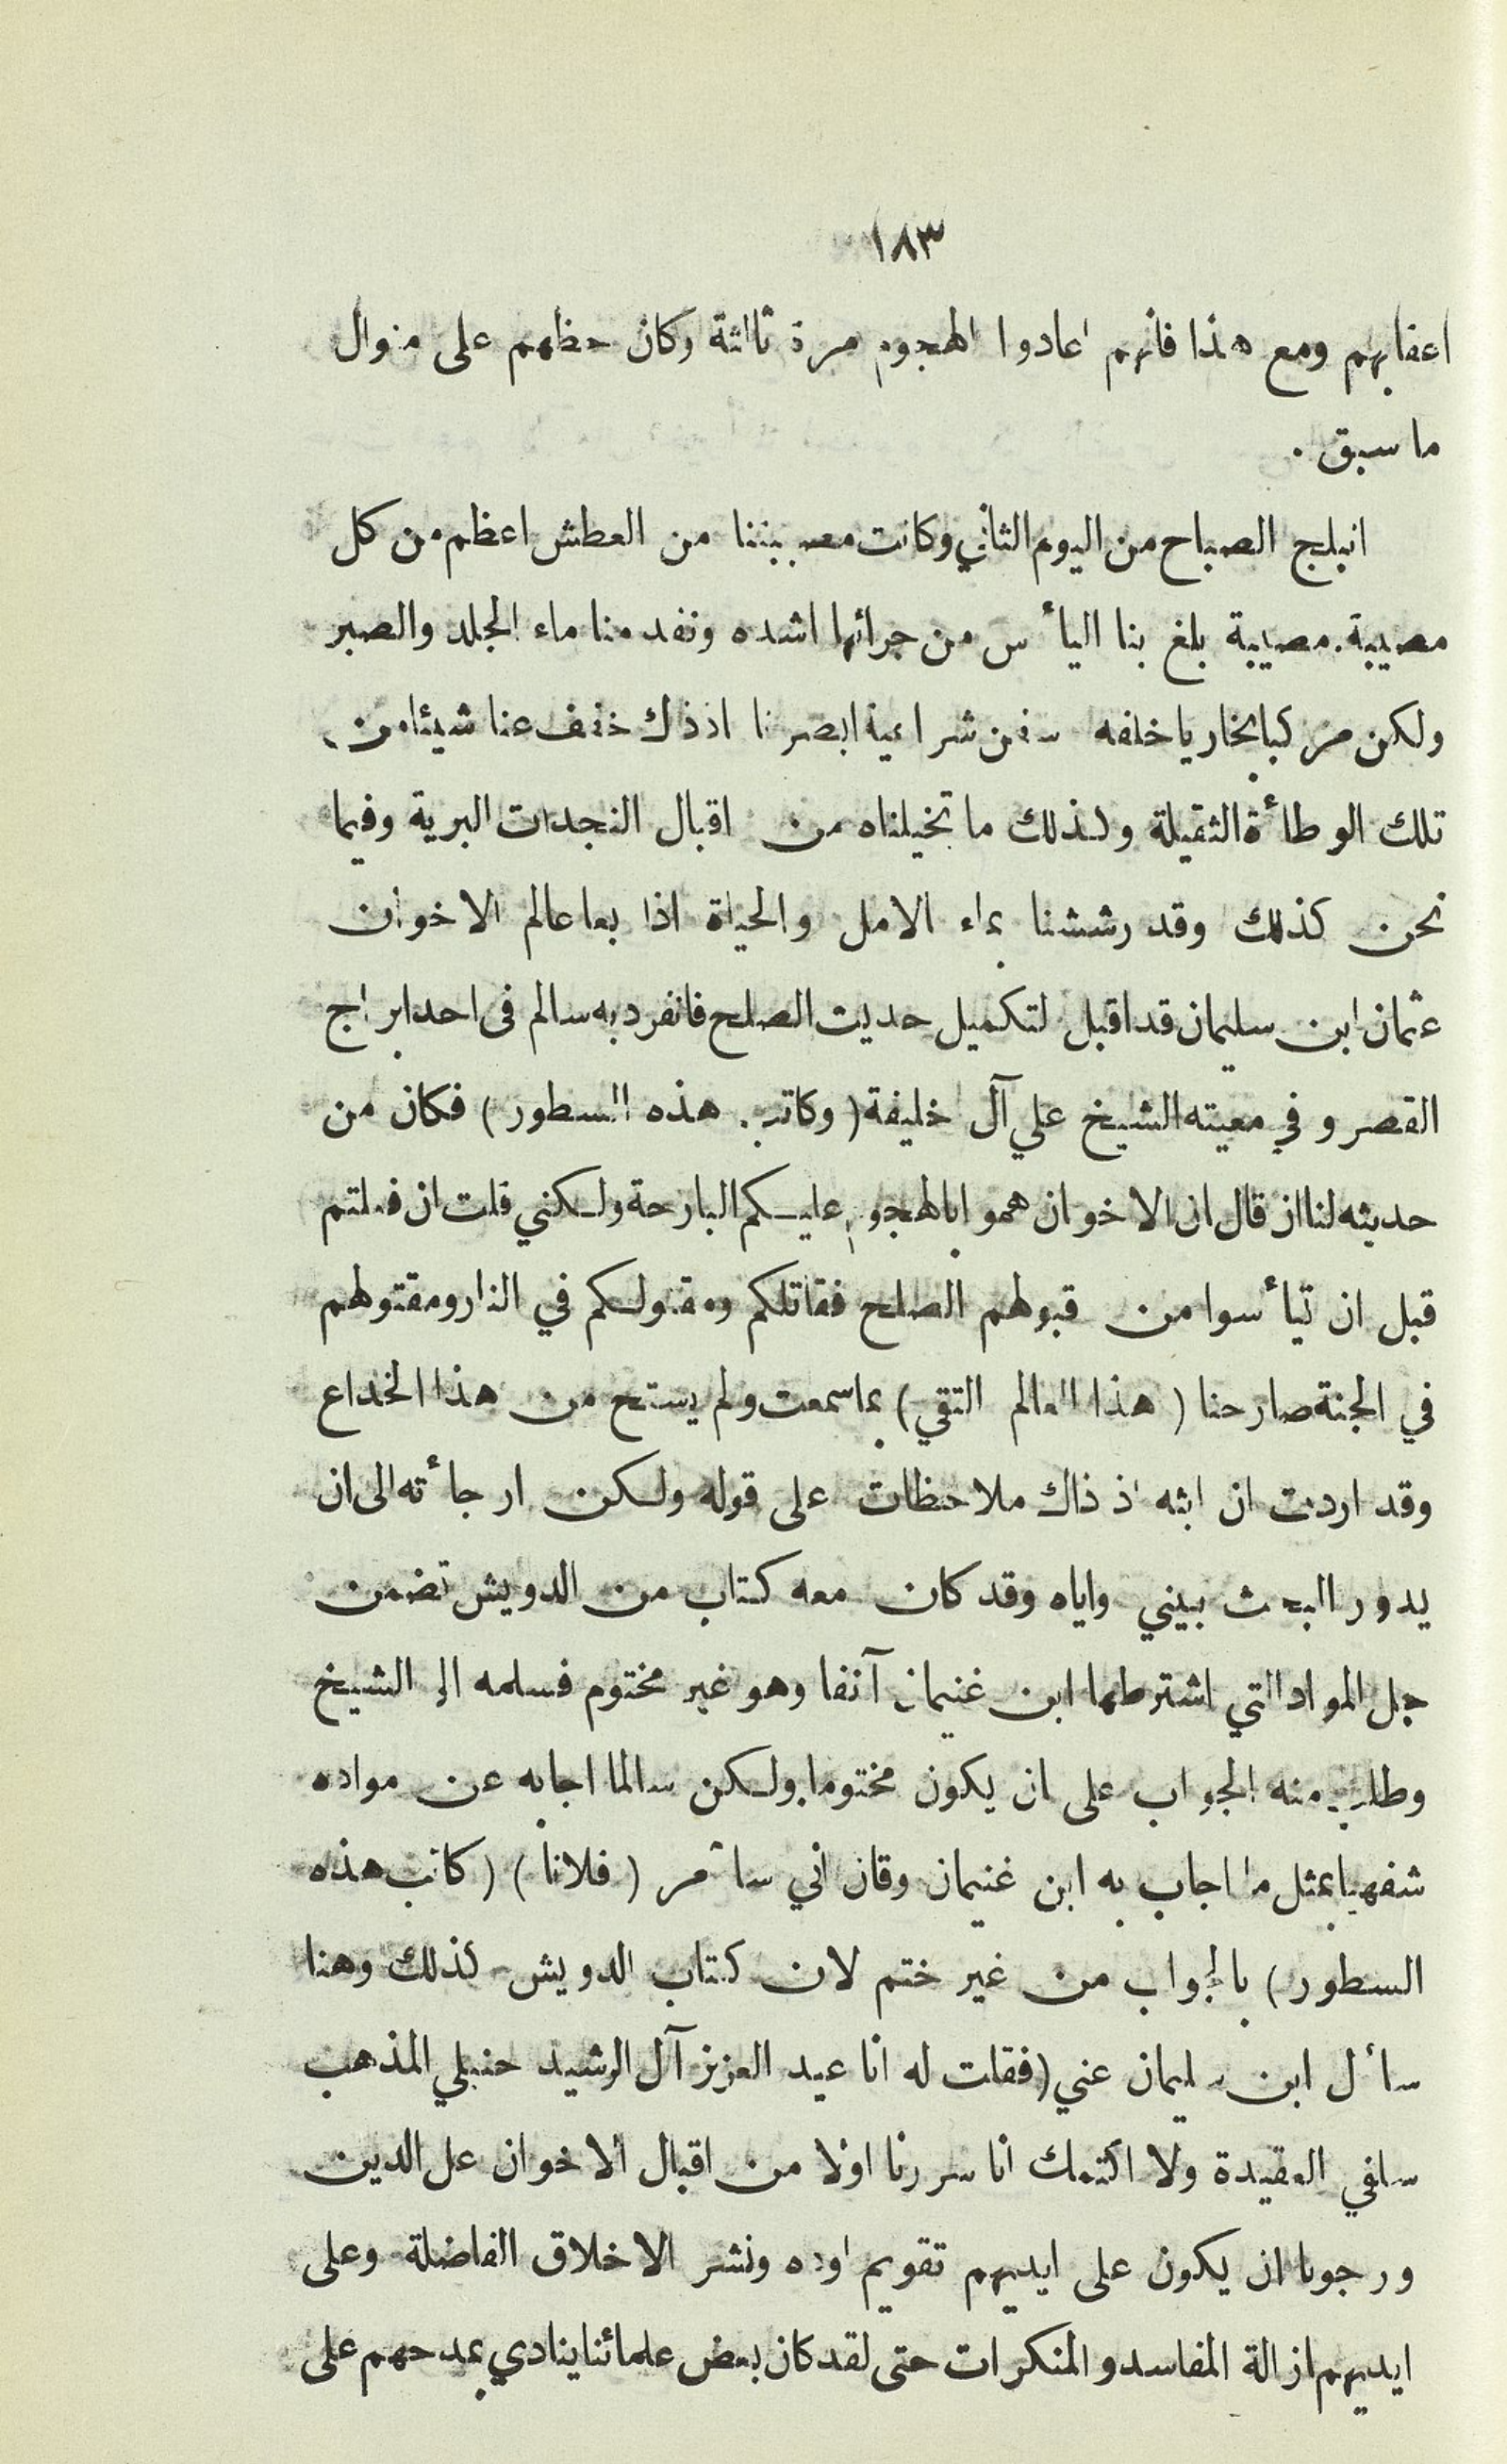 ١٨٣
اعقابهم ومع هذا فانهم اعادوا الهجوم مرة ثالثة وكان حظهم على منوال
ما سبق .
انبلج الصباح من اليوم الثاني وكانت مصيبتنا من العطش اعظم من كل
مصيبة. مصيبة بلغ بنا اليأس من جرائها اشده ونفد منا ماء الجلد والصبر
ولكن مركبا بخاريا خلفه سفن شراعية ابصرنا اذ ذلك خفف عنا شيئا من
تلك الوطأة الثقيلة ولذلك ما تخيلناه من اقبال النجدات البرية وفيما
نحن كذلك وقد رششنا بماء الامل والحياة اذا بعا عالم الاخوان
عثمان ابن سليمان قد اقبل لتكميل حديث الصلح فانفرد به سالم فى احد ابراج
القصر وفي معيته الشيخ علي آل خليفة ( وكاتب هذه السطور ) فكان من
حديثه لنا ان قال ان الاخوان هموا بالهجوم عليكم البارحة ولكني قلت ان فعلتم
قبل ان تيأسوا من قبولهم الصلح فقاتلكم ومقتولكم في النار ومقتولهم
في الجنة صارحنا ( هذا العالم التقي ) بما سمعت ولم يستح من هذا الخداع
وقد اردت ان ابثه اذ ذاك ملاحظات على قوله ولكن ارجأته الى ان
يدور البحث بيني واياه وقد كان معه كتاب من الدويش تضمن
جل المواد التي اشترطها ابن غنيمان آنفا وهو غير مختوم فسلمه الى الشيخ
وطلب منه الجواب على ان يكون مختوما ولكن سالما اجابه عن مواده
شفهيا بمثل ما اجاب به ابن غنيمان وقال اني سآمر ( فلانا ) ( كاتب هذه
السطور ) بالجواب من غير ختم لان كتاب الدويش كذلك وهنا
سأل ابن سليمان عني (فقلت له انا عبد العزيز آل الرشيد حنبلي المذهب
سلفي العقيدة ولا اكتمك انا سررنا اولا من اقبال الاخوان على الدين
ورجونا ان يكون على ايديهم تقويم اوده ونشر الاخلاق الفاضلة وعلى
ايديهم ازالة المفاسد والمنكرات حتى لقد كان بعض علمائنا ينادي بمدحهم على